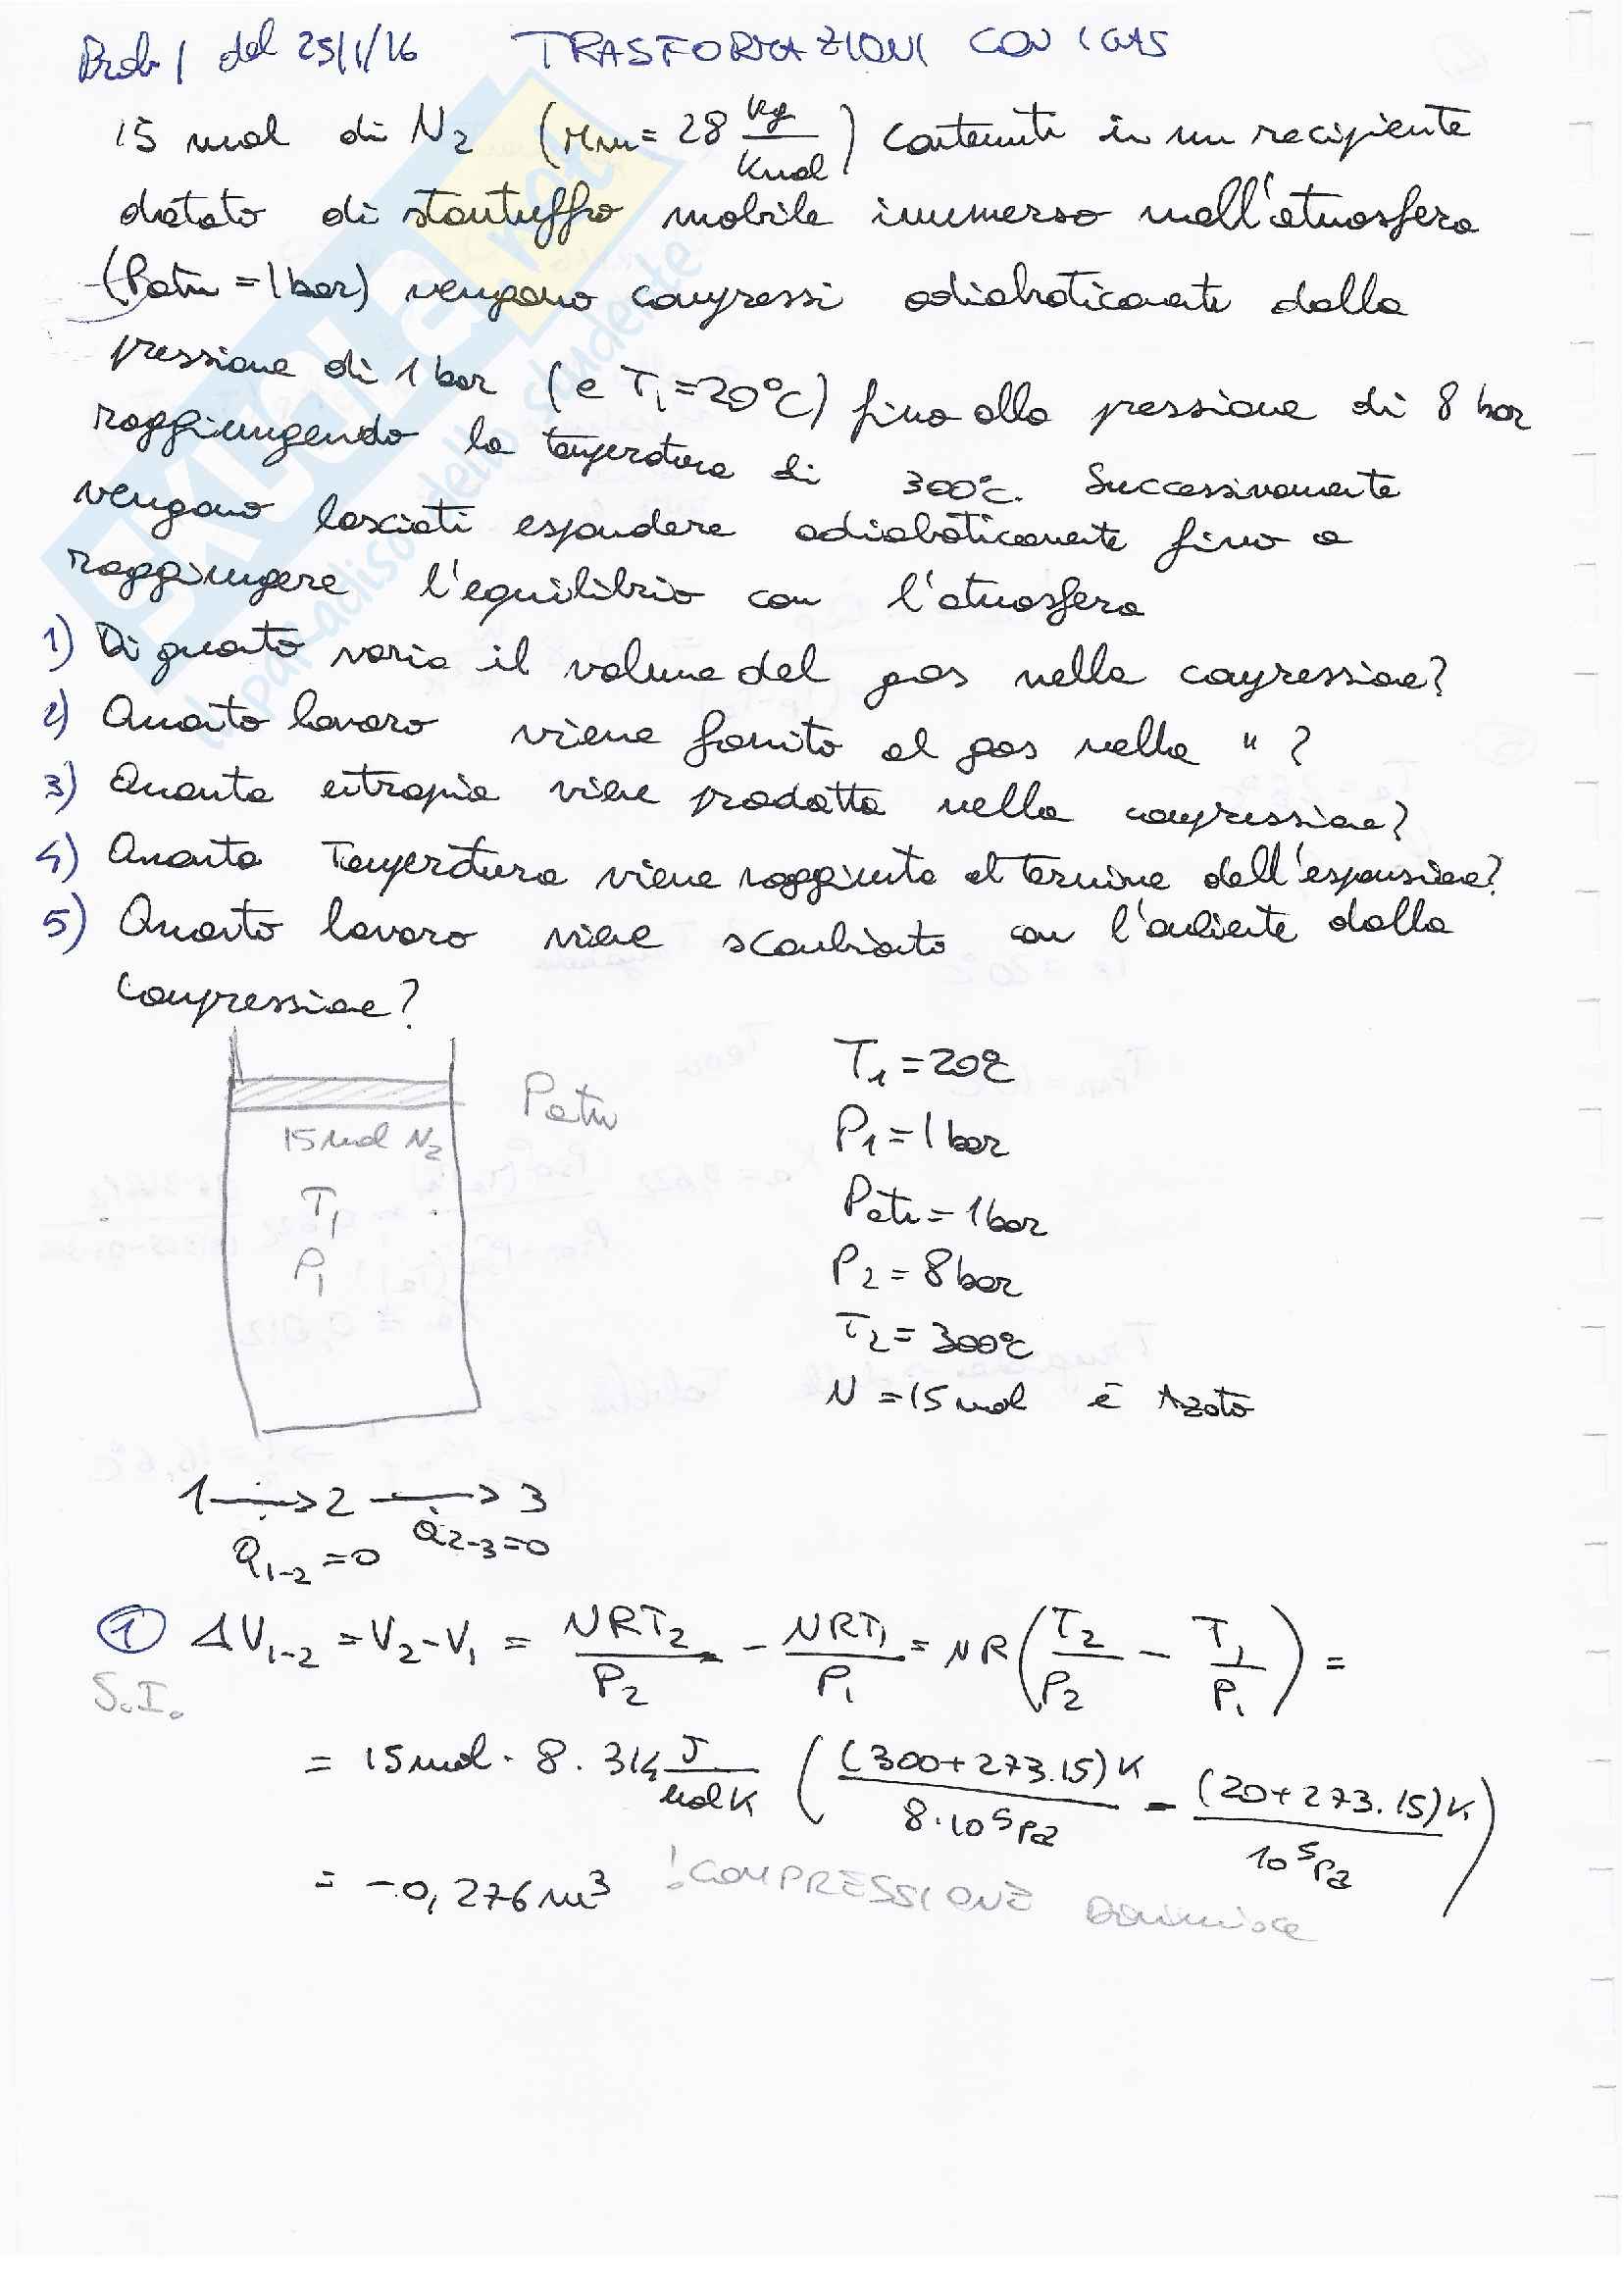 Prob 1 del 25/1/16 TRASFORMAZIONI CON I GAS
15 mol di N2 (Mm = 28 kg/kmol) contenuti in un recipiente
dotato di stantuffo mobile immerso nell'atmosfera
(Patm = 1 bar) vengono compressi adiabaticamente dalla
pressione di 1 bar (e T1 = 20°C) fino alla pressione di 8 bar
raggiungendo la temperatura di 300°C. Successivamente
vengono lasciati espandere adiabaticamente fino a
raggiungere l'equilibrio con l'atmosfera
1) Di quanto varia il volume del gas nella compressione?
2) Quanto lavoro viene fornito al gas nella " ?
3) Quanta entropia viene prodotta nella compressione?
4) Quanta Temperatura viene raggiunta al termine dell'espansione?
5) Quanto lavoro viene scambiato con l'ambiente dalla
compressione?
Patm
15 mol N2
T1
P1
T1 = 20°C
P1 = 1 bar
Patm = 1 bar
P2 = 8 bar
T2 = 300°C
N = 15 mol è Azoto
1 → 2 → 3
Q1-2 = 0 Q2-3 = 0
① ΔV1-2 = V2 - V1 = NRT2/P2 - NRT1/P1 = NR(T2/P2 - T1/P1) =
S.I.
= 15 mol · 8.314 J/molK ((300+273.15)K/8·10^5 Pa - (20+273.15)K/10^5 Pa)
= -0,276 m³ ! COMPRESSIONE Diminuisce
SKUOLA.net
il paradiso dello studente